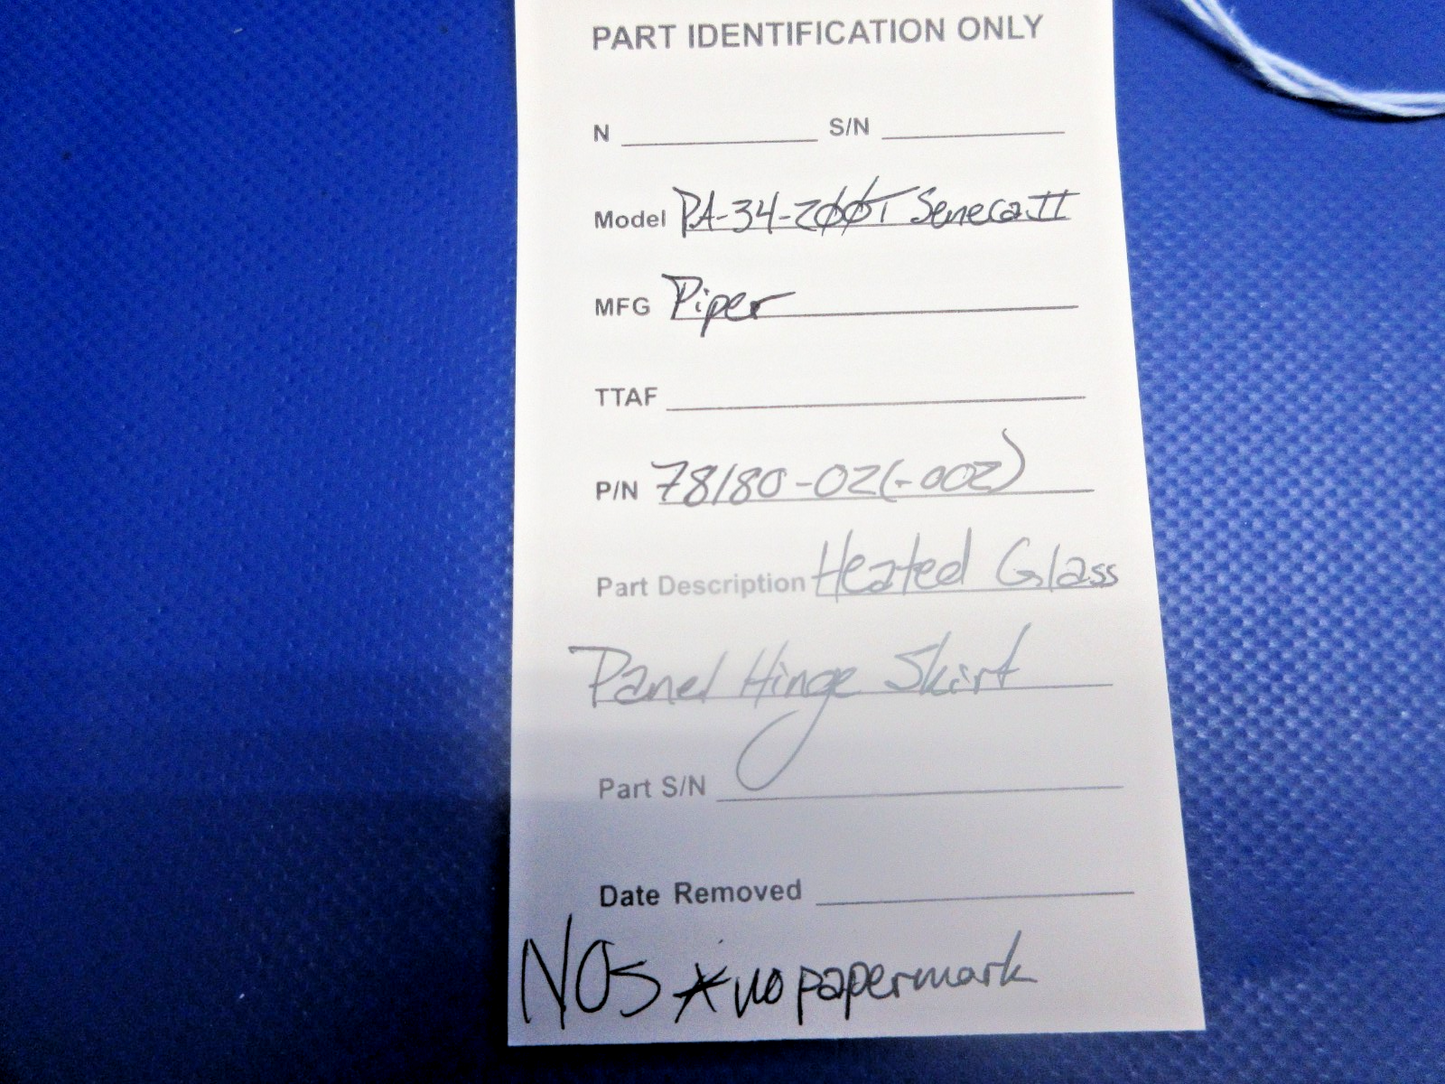 PART IDENTIFICATION ONLY
N S/N
Model PA-34-200T Seneca II
MFG Piper
TTAF
P/N 78180-02(-002)
Part Description Heated Glass
Panel Hinge Skirt
Part S/N
Date Removed
NOS *no papermark